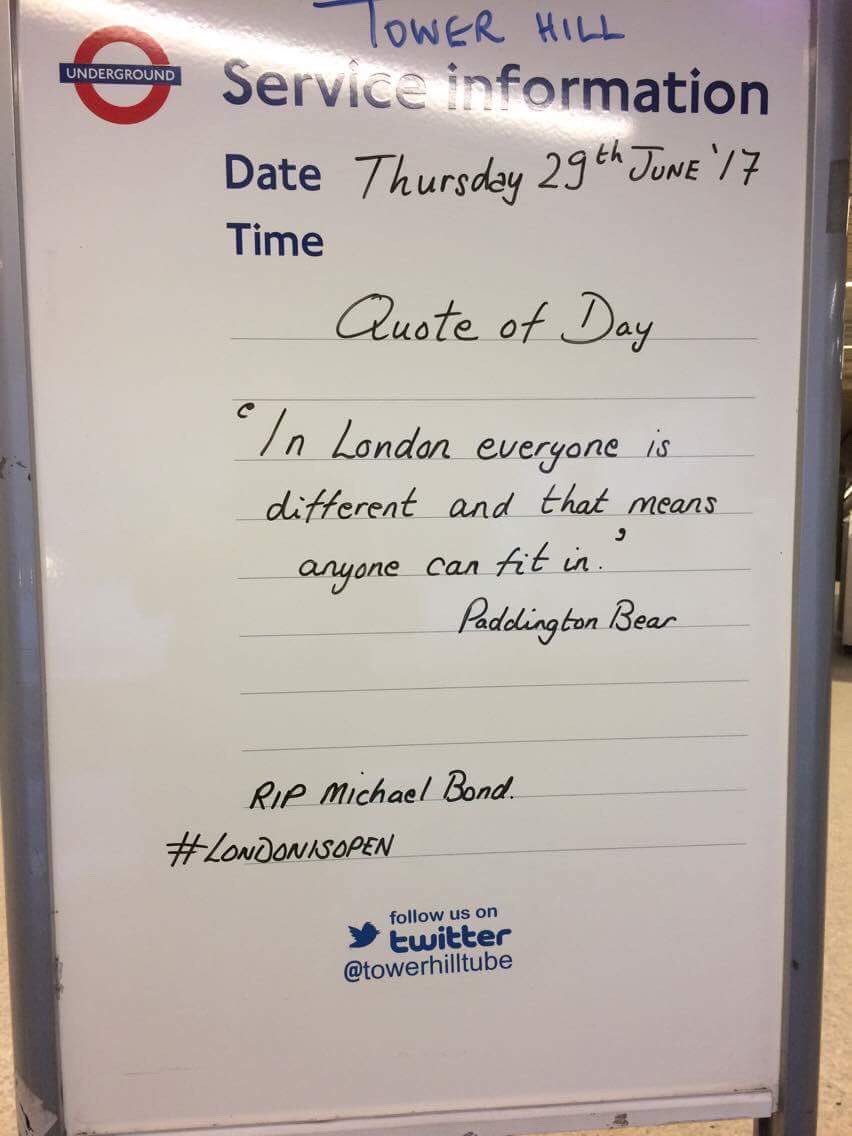 TOWER HILL
UNDERGROUND
Service information
Date Thursday 29th JUNE '17
Time
Quote of Day
'In London everyone is
different and that means
anyone can fit in.'
Paddington Bear
RIP Michael Bond.
#LONDONISOPEN
follow us on
twitter
@towerhilltube